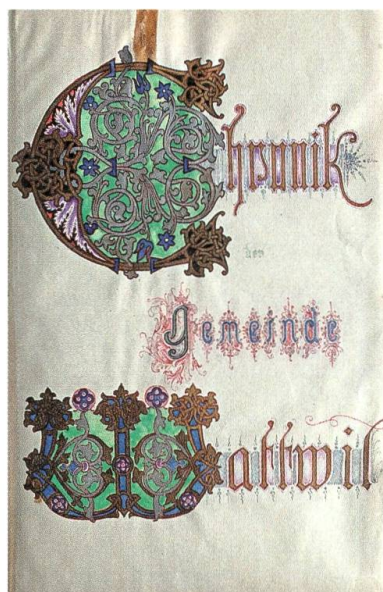 Chronik
der
Gemeinde
Wattwil